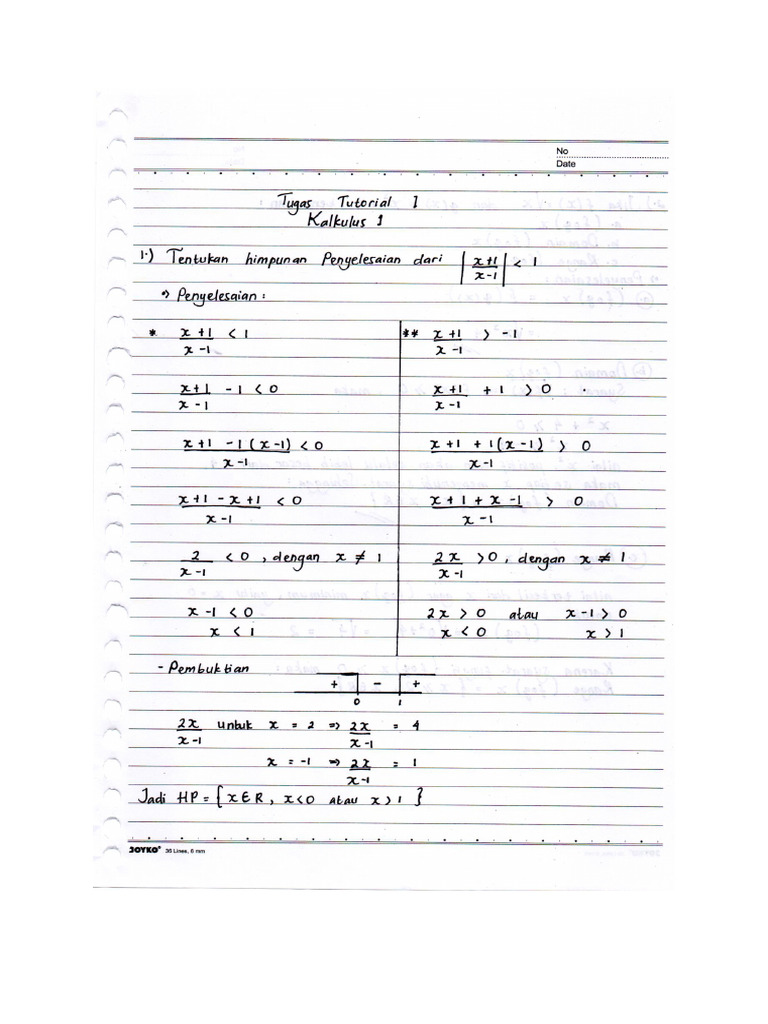 No
Date
Tugas Tutorial 1
Kalkulus 1
1.) Tentukan himpunan Penyelesaian dari |x+1 / x-1| < 1
=) Penyelesaian :
* x+1 / x-1 < 1
x+1 / x-1 - 1 < 0
x+1 - 1(x-1) / x-1 < 0
x+1-x+1 / x-1 < 0
2 / x-1 < 0, dengan x ≠ 1
x-1 < 0
x < 1
** x+1 / x-1 > -1
x+1 / x-1 + 1 > 0
x+1 + 1(x-1) / x-1 > 0
x+1+x-1 / x-1 > 0
2x / x-1 > 0, dengan x ≠ 1
2x > 0 atau x-1 > 0
x < 0 x > 1
- Pembuktian
+ - +
0 1
2x / x-1 untuk x = 2 => 2x / x-1 = 4
x = -1 => 2x / x-1 = 1
Jadi HP = {x∈R, x<0 atau x>1}
JOYKO® 36 Lines, 6 mm